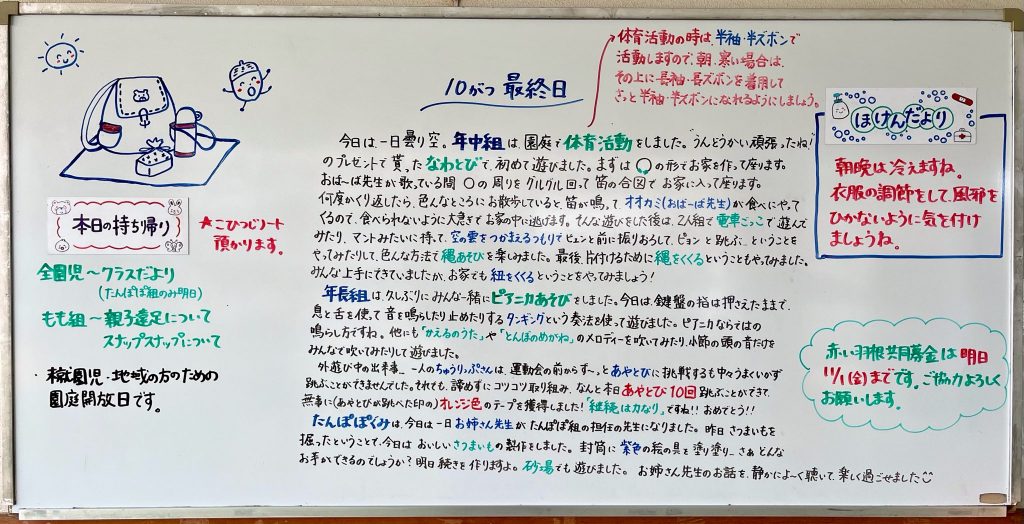 10がつ 最終日
体育活動の時は、半袖・半ズボンで
活動しますので、朝、寒い場合は、
その上に長袖・長ズボンを着用して
さっと半袖・半ズボンになれるようにしましょう。
本日の持ち帰り
★こひつじノート
預かります。
全園児～クラスだより
(たんぽぽ組のみ明日)
もも組～親子遠足について
スナップスナップについて
・ 園児・地域の方のための
園庭開放日です。
今日は、一日曇り空。年中組は、園庭で体育活動をしました。"うんどうかい頑張ったね!"
のプレゼントで貰ったなわとびで、初めて遊びました。まずは〇の形でお家を作って座ります。
おば～ば先生が歌っている間 〇の周りをグルグル回って笛の合図でお家に入って座ります。
何度かくり返したら、色んなところにお散歩していると笛が鳴って、オオカミ(おば～ば先生)が食べにやって
くるので、食べられないように大急ぎでお家の中に逃げます。そんな遊びをした後は、2人組で電車ごっこで遊んで
みたり、マントみたいに持って、空の雲をつかまえるつもりでビュンと前に振りおろして、ピョンと跳ぶ…ということを
やってみたりして、色んな方法で縄あそびを楽しみました。最後、片付けるために縄をくくるということもやってみました。
みんな上手にできていましたが、お家でも紐をくくるということをやってみましょう!
年長組は、久しぶりにみんな一緒にピアニカあそびをしました。今日は、鍵盤の指は押さえたままで、
息と舌を使って音を鳴らしたり止めたりするタンギングという奏法を使って遊びました。ピアニカならではの
鳴らし方ですね。他にも「かえるのうた」や「とんぼのめがね」のメロディーを吹いてみたり、小節の頭の音だけを
みんなで吹いてみたりして遊びました。
外遊び中の出来事…一人のちゅうりっぷさんは、運動会の前からず～っとあやとびに挑戦するも中々うまくいかず
跳ぶことができませんでした。それでも、諦めずにコツコツ取り組み、なんと本日あやとび10回跳ぶことができて、
無事に(あやとびが跳べた印の)オレンジ色のテープを獲得しました!「継続は力なり」ですね!!おめでとう!!
たんぽぽぐみは、今日は一日お姉さん先生がたんぽぽ組の担任の先生になりました。昨日さつまいもを
掘ったということで、今日はおいしいさつまいもの製作をしました。封筒に紫色の絵の具を塗り塗り…さぁどんな
お芋ができるのでしょうか?明日続きを作りますよ。砂場でも遊びました。お姉さん先生のお話を、静かによ～く聴いて、楽しく過ごせました
ほけんだより
朝晩は冷えますね。
衣服の調節をして、風邪を
ひかないように気を付け
ましょうね。
赤い羽根共同募金は明日
11/1(金)までです。ご協力よろしく
お願いします。